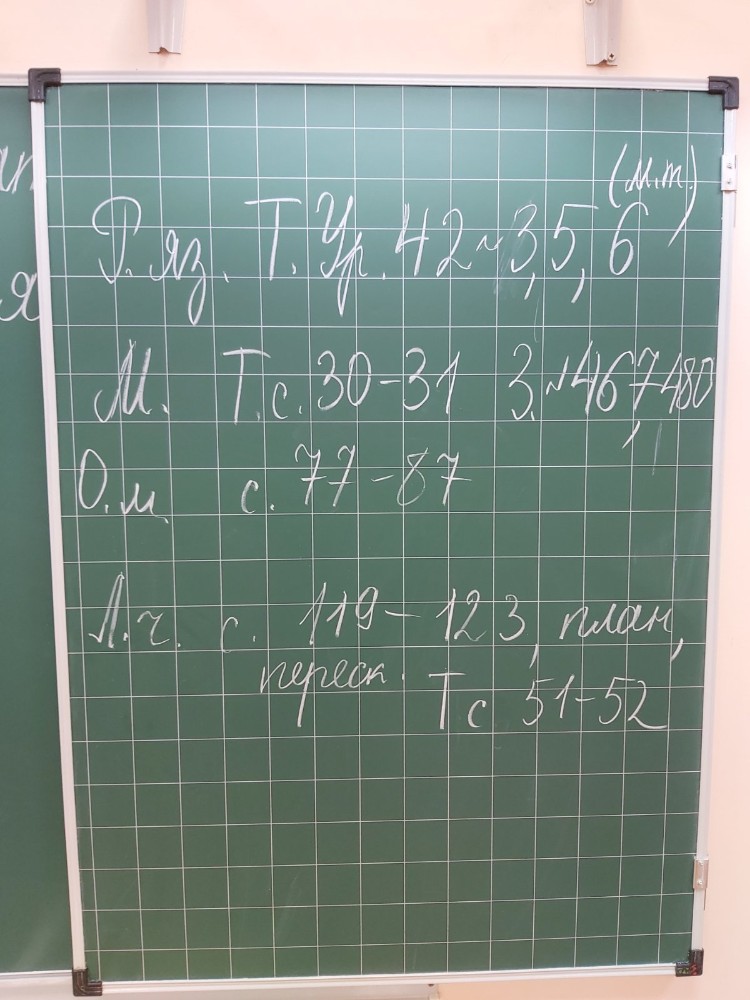 (м.т.)
Р. яз. Т. Ур. 42 ~ 3, 5, 6
М. Т. с. 30-31 З. № 467, 480
О. м. с. 77-87
Л. ч. с. 119-123, план,
переск. Т с 51-52
я